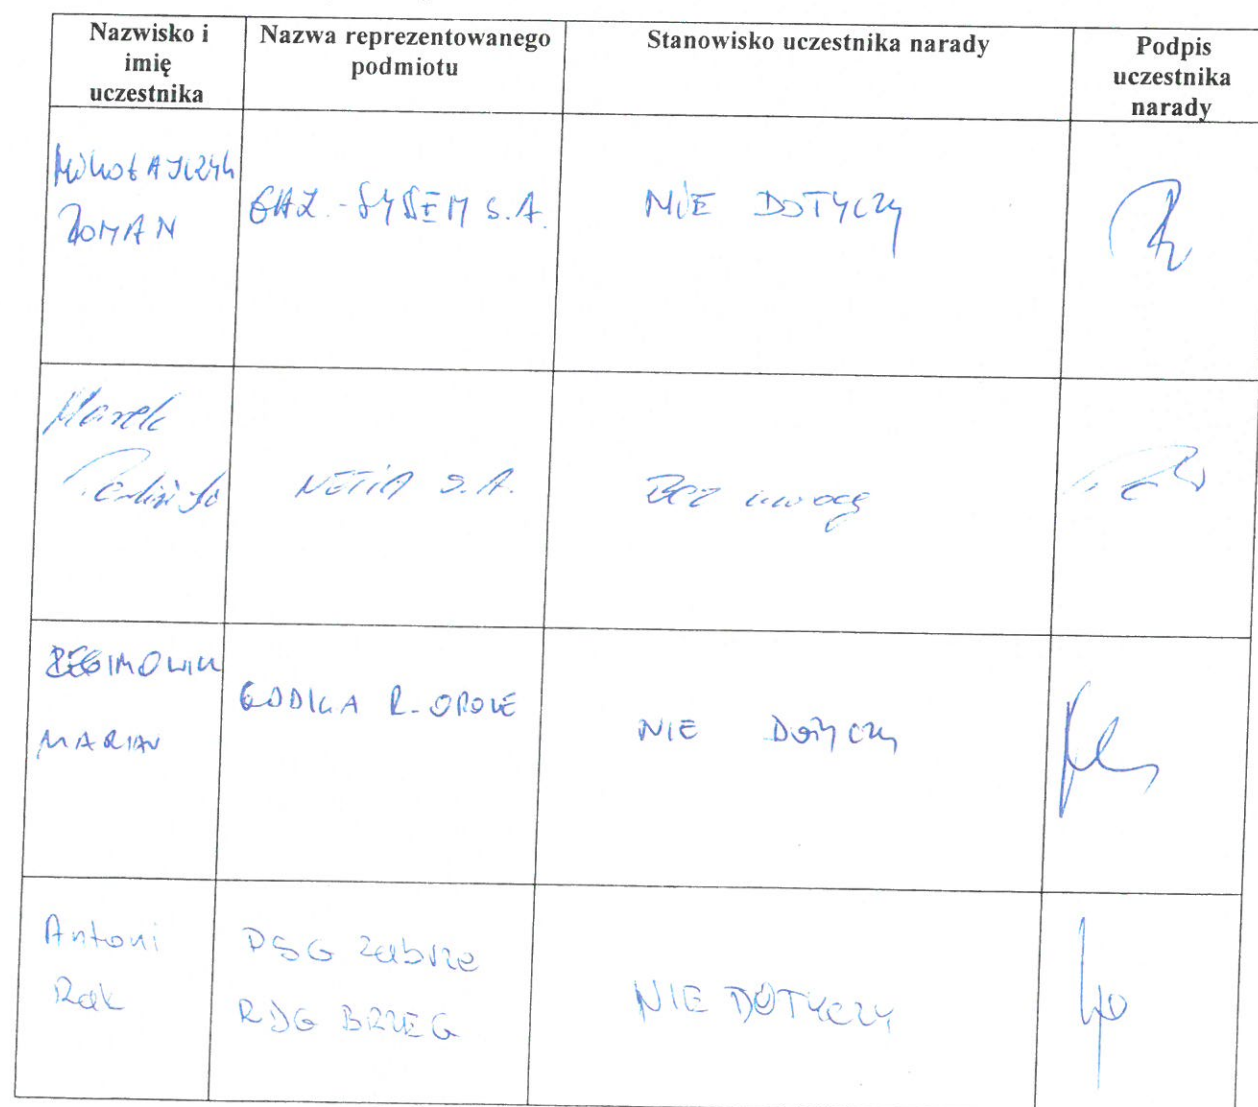 Nazwisko i
imię
uczestnika
Nazwa reprezentowanego
podmiotu
Stanowisko uczestnika narady
Podpis
uczestnika
narady
MIKOŁAJCZYK
ROMAN
GAZ-SYSEM S.A.
NIE DOTYCZY
Marek
NETIA S.A.
Bez uwag
MARIAN
R-OPOLE
NIE DOTYCZY
Antoni
Rak
PSG Zabrze
RDG BRZEG
NIE DOTYCZY